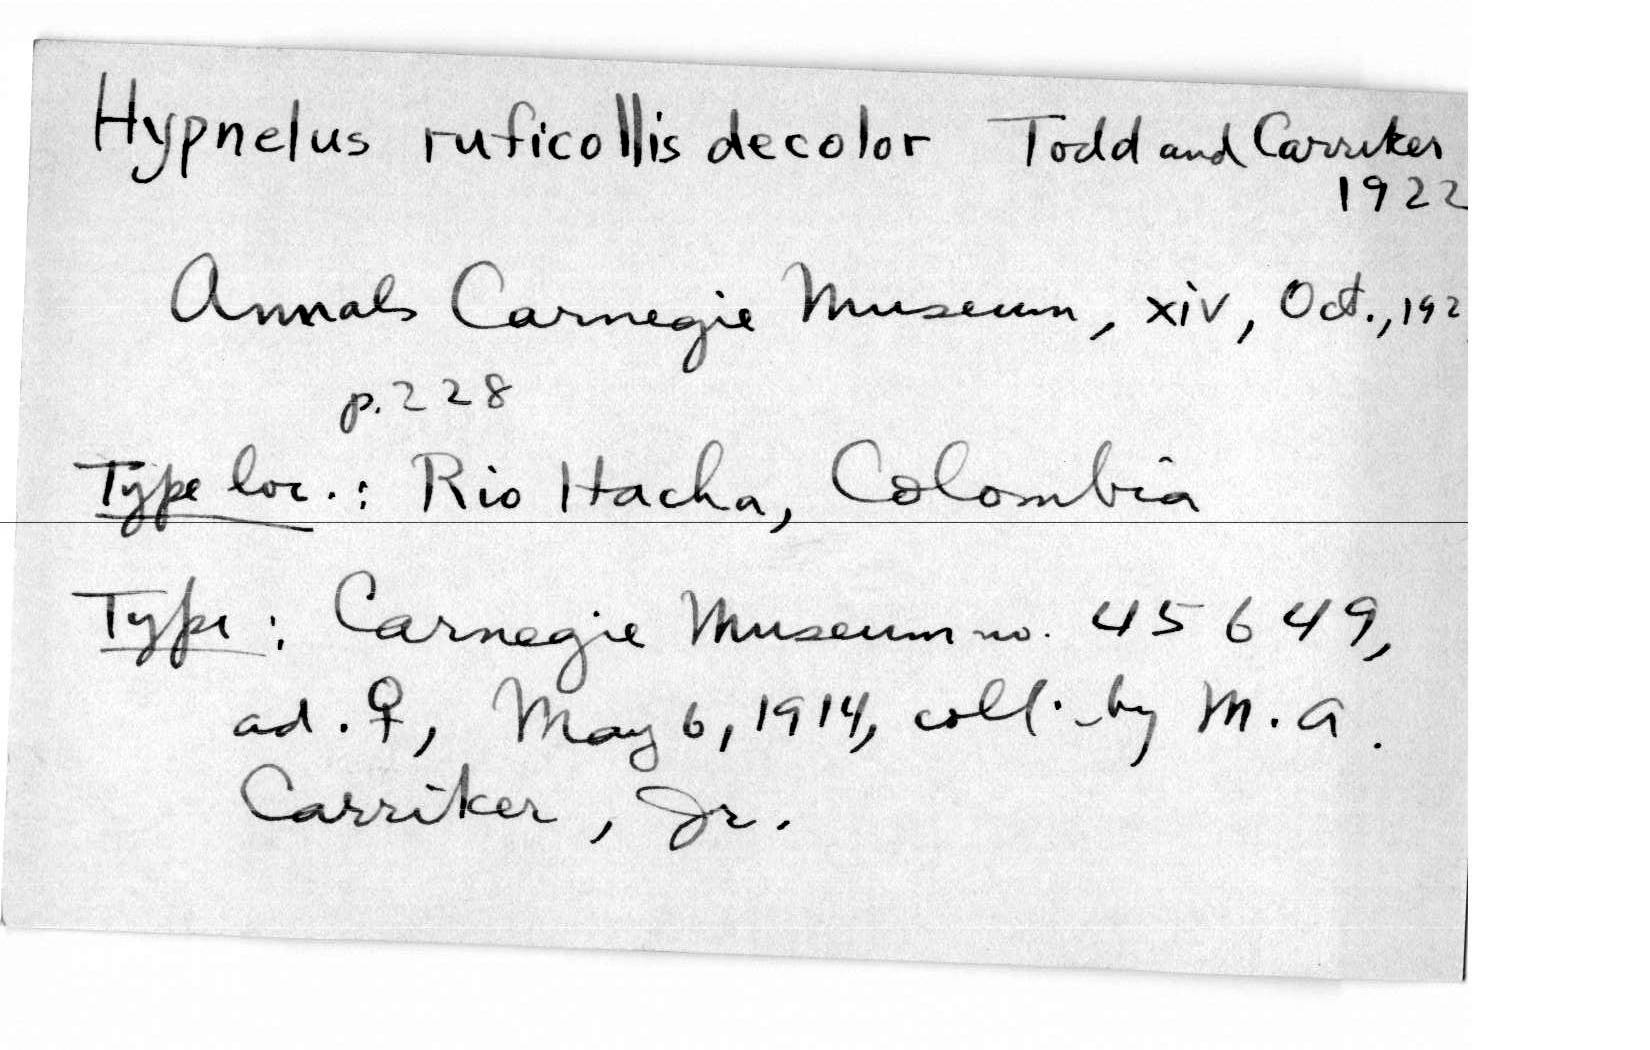 Hypnelus ruficollis decolor Todd and Carriker
1922
Annals Carnegie Museum, xiv, Oct., 192
p. 228
Type loc.: Rio Hacha, Colombia
Type: Carnegie Museum no. 45649,
ad. ♀, May 6, 1914, coll. by M. A.
Carriker, Jr.